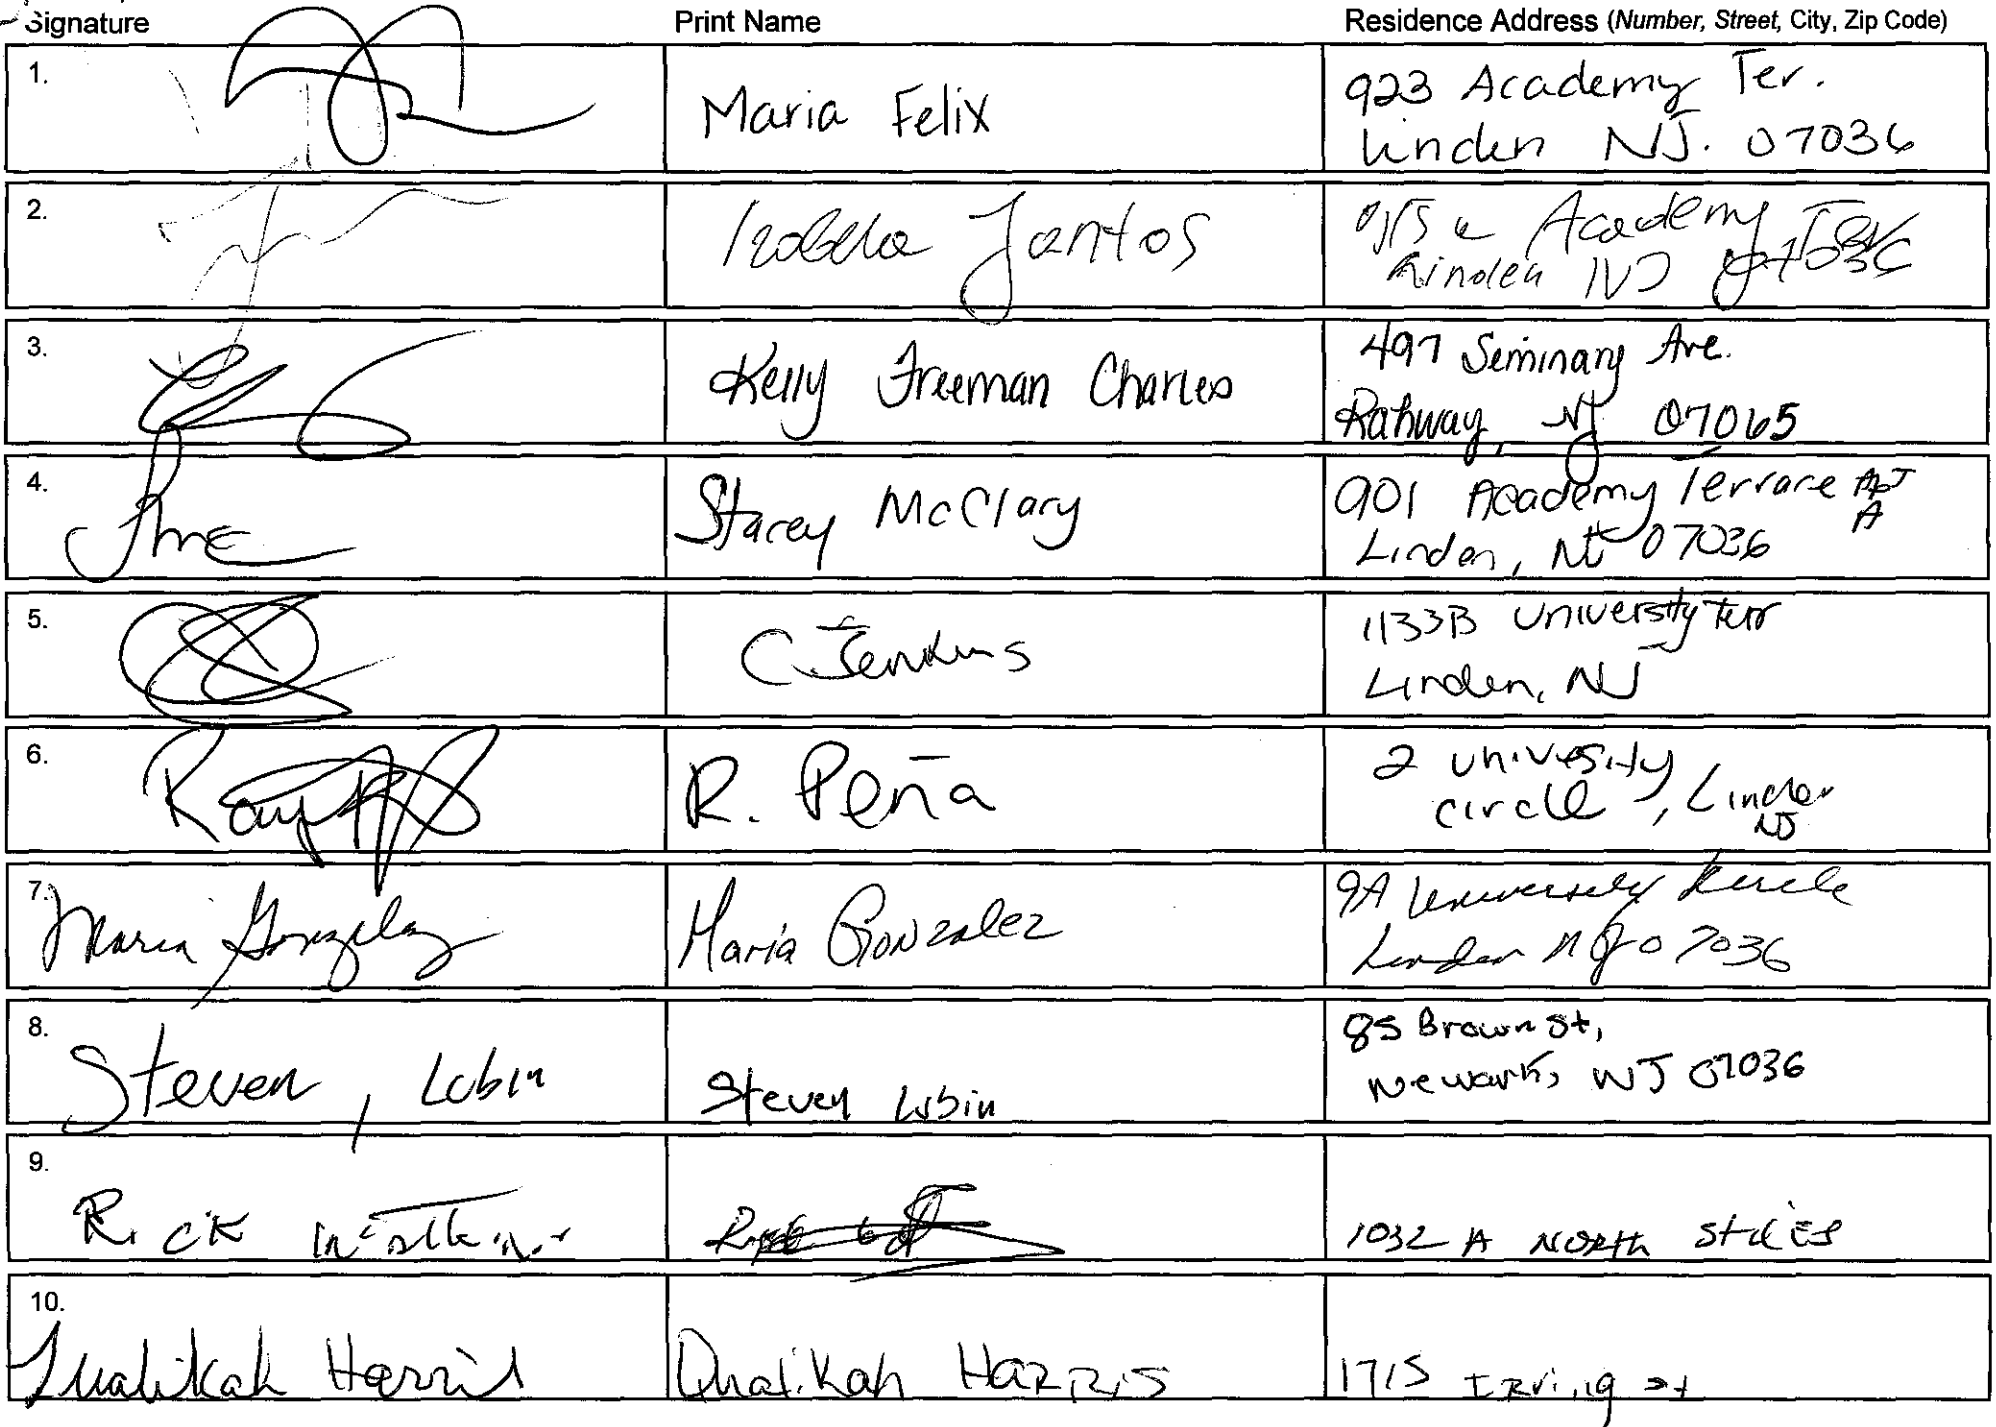 Signature Print Name Residence Address (Number, Street, City, Zip Code)
1. Maria Felix 923 Academy Ter.
Linden NJ. 07036
2. Jantos Academy Ter
Linden NJ 07036
3. Kelly Freeman Charles 497 Seminary Ave.
Rahway, NJ 07065
4. Stacey McClary 901 Academy Terrace Apt
A
Linden, NJ 07036
5. C Jenkins 1133B University Terr
Linden, NJ
6. Ray R. Peña 2 univesity
circle, Linden
NJ
7. Maria Gonzalez Maria Gonzalez 9A University Circle
Linden NJ 07036
8. Steven, Lubin Steven Lubin 85 Brown St,
Newark, NJ 07036
9. Rick 1032 A North Stiles
10. Qualikah Harris Qualikah HARRIS 1715 Irving st